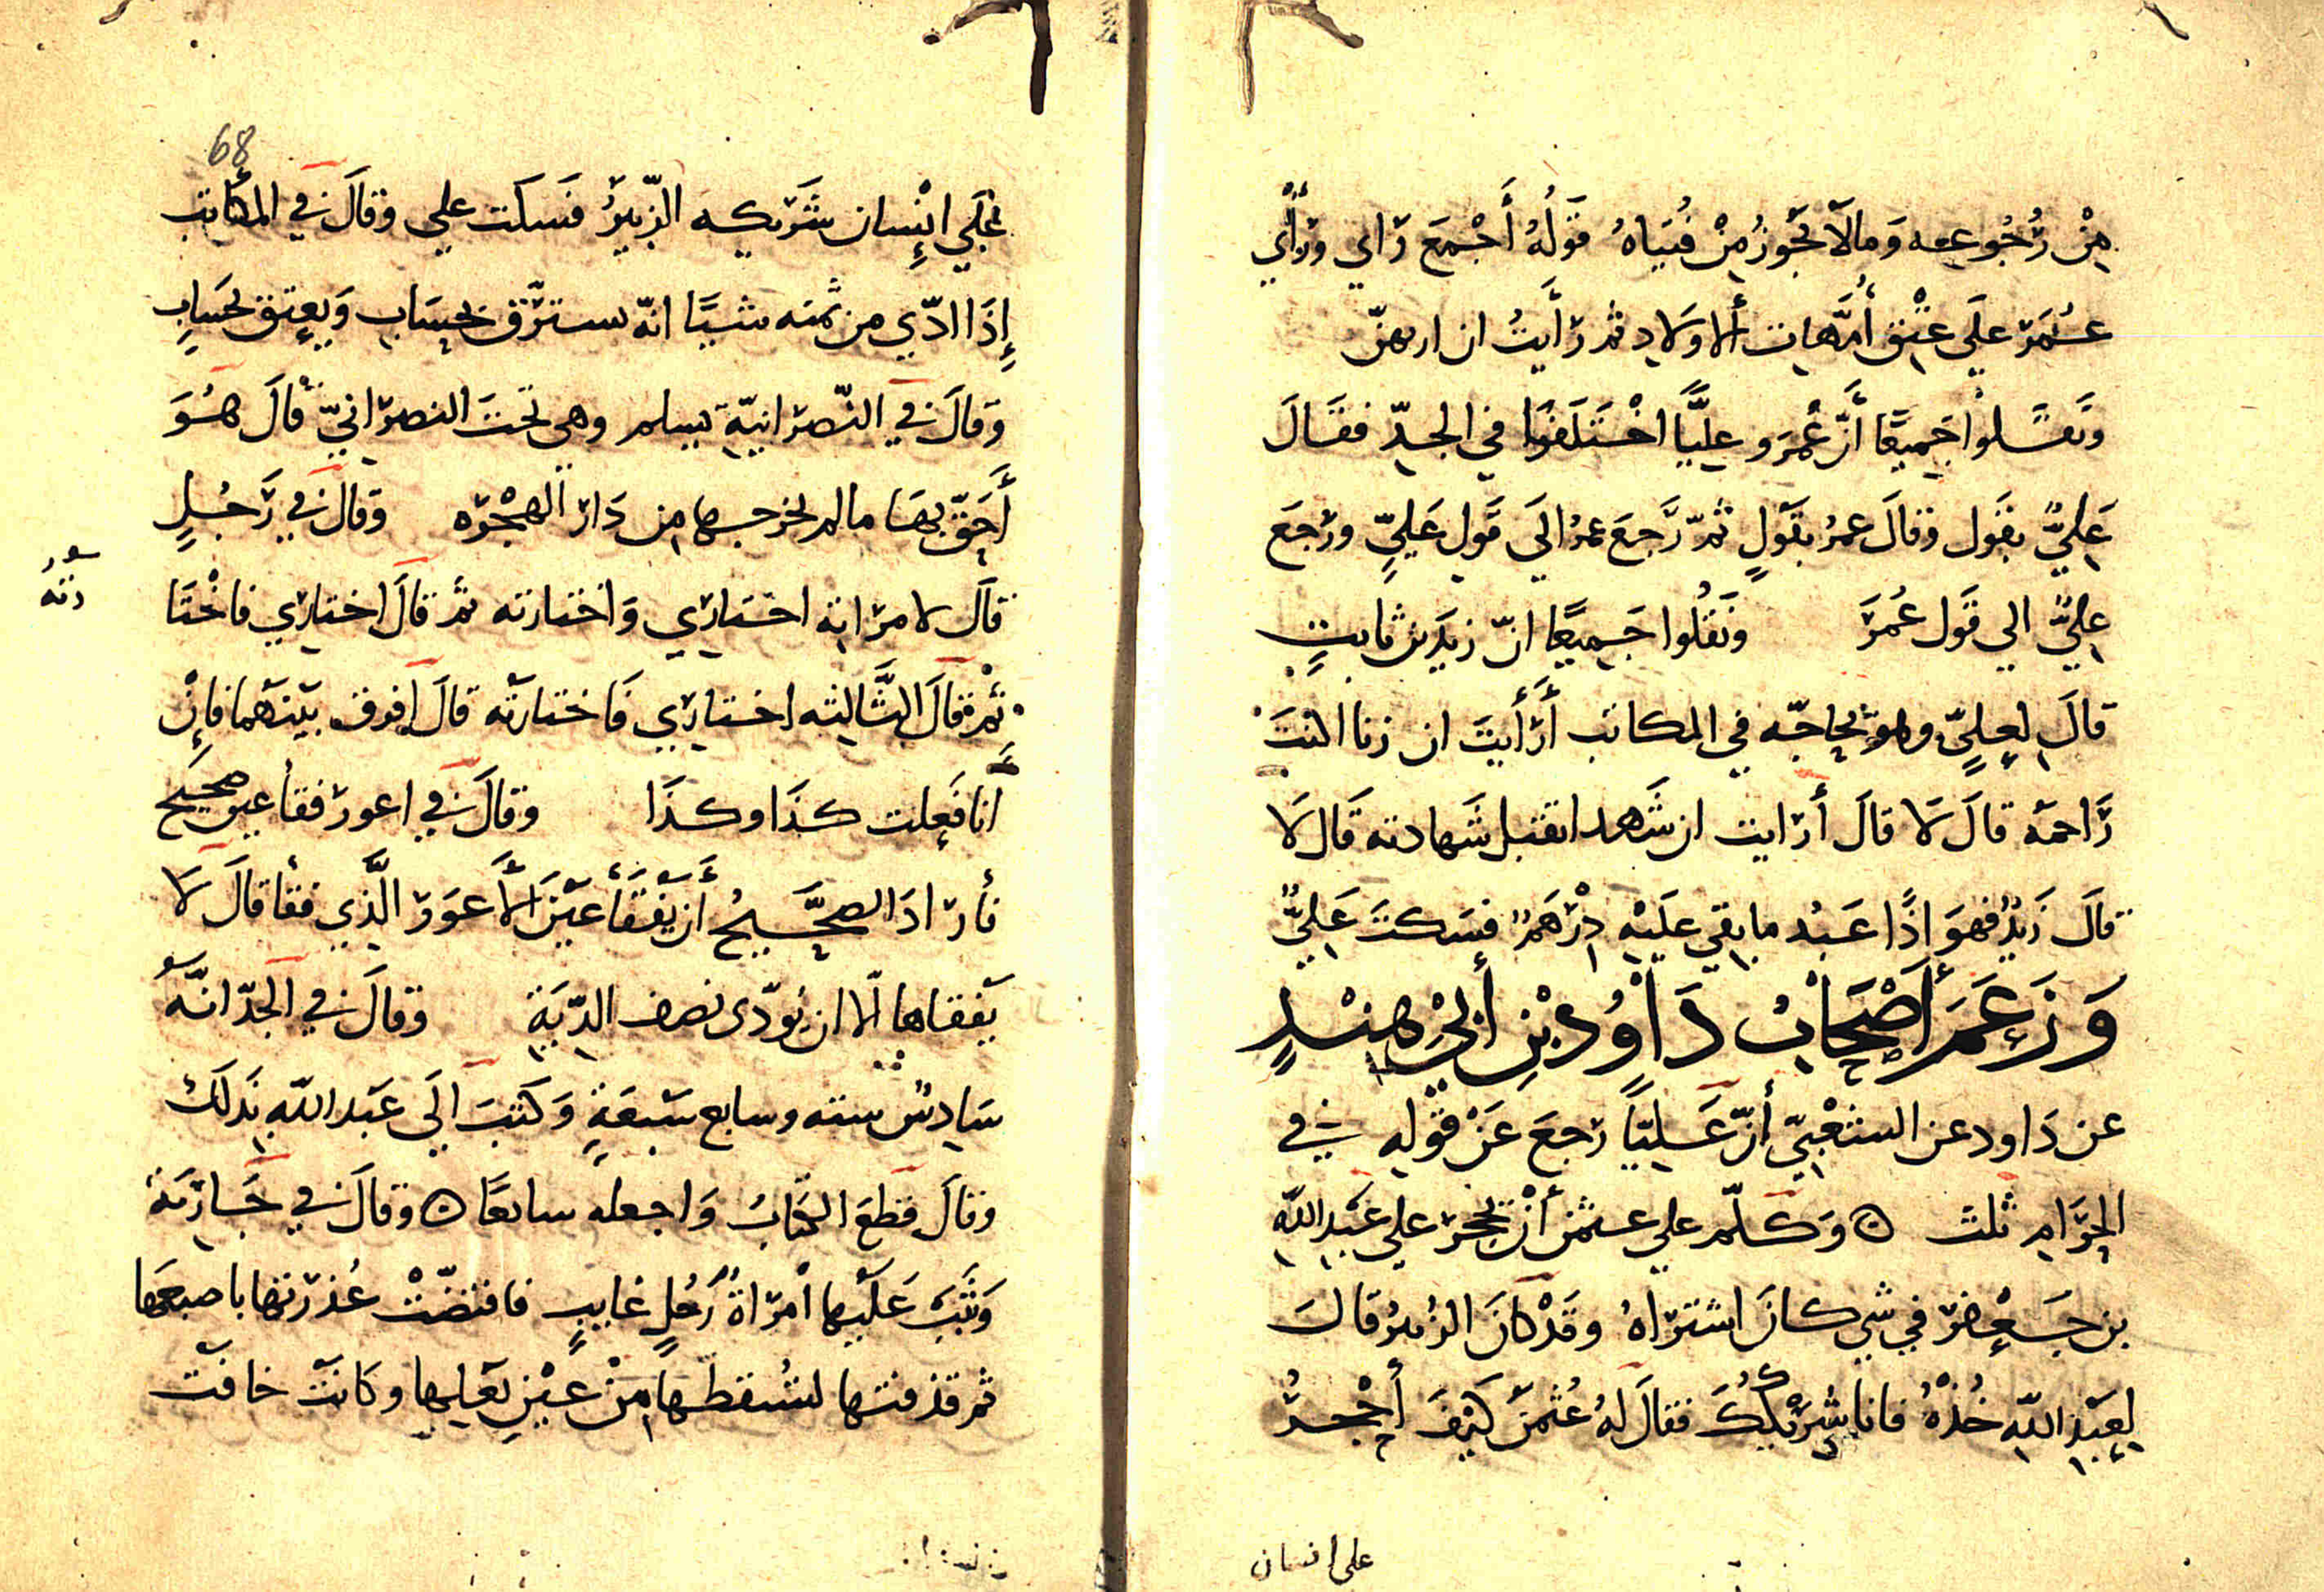 مِنْ رُجُوعِه وَمالا يَجُوزُ مِنْ فُتيَاهُ قَولُهُ أَجْمعَ رَايي ورَأْيُ
عُمَرَ علَي عِتْق أُمَّهات ألاولَادِ ثم رَأَيتُ ان ارقهنّ
وَنَقَلوا جَميعًا أنّ عُمَرَ وعليًّا اخْتَلَفَوا في الجدّ فقَالَ
عَليٌّ بقَول وقالَ عمرُ بقَولٍ ثمّ رَجعَ عمرُ الَي قَول عَليٍّ ورَجعَ
عليٌّ الي قَول عُمَرَ ونَقلُوا جَميعًا انّ زيدَ بنَ ثابتٍ
قالَ لِعَليٍّ وهو يحاجّه في المكاتب أرَأَيتَ ان زنا اكنتَ
رَاجمَه قالَ لَا قالَ أرَايت ان شَهد اتقبل شَهادته قَال لَا
قالَ زَيدٌ فهوَ اذًا عَبْد ما بقي علَيْهِ دِرْهَمٌ فسَكتَ عَليٌّ
وَزَعَمَ أَصْحَابُ دَاوُدَ بْنِ أَبِي هِنْدٍ
عن دَاود عن الشَعْبيّ أنّ عَليًّا رَجعَ عَنْ قَوْلِهِ في
الحَرَامِ ثلث ۞ وَكلّم علي عثمن أنْ يحجرَ علي عَبْدِ اللّهِ
بن جَعْفرٍ في شي كانَ اشتراهُ وقَدْ كانَ الزُبيرُ قَالَ
لِعَبْدِ اللّهِ خُذْهُ فانا شَرِيْكُكَ فقالَ لهُ عُثمنُ كَيْفَ أحْجرُ
علي انسان
68
عَلَي انْسان شَرَيكه الزّبيرُ فَسَكت علي وقالَ في المكاتب
إذَا ادّي من ثمنه شيًا انّه يسترَّق بحِسَاب وَيعتق بحسَابٍ
وَقالَ في النّصرَانيّة تسلم وهي تحتَ النصرَانيّ قالَ هُوَ
أحَقّ بهَا ما لم يخرجها مِن دَارِ الهجْرَه وقالَ في رَجُلٍ
قالَ لامرَاته اختَارِي وَاختارته ثم قالَ اختارِي فاخْتَا
رته
ثمَّ قالَ الثَّالثه اختارِي فَاختارته قالَ افرق بَينَهمَا فإِنْ
انا فَعلت كذَا وكذَا وقالَ في اعورَ فقأ عين صحيح
فأرَادَ الصَّحيحُ أَن يفقَأ عَيْنَ الأعوَرَ الَّذي فقأ قالَ لَا
يفقاها الّا ان يُودّى نصف الدّيَةِ وقالَ في الجدّ انَّه
سَادسُ سته وسابع سَبعَةٍ وَكتبَ الَي عَبد اللّهِ بذَلكَ
وقالَ قطع الكتابُ وَاجعله سابعًا ۞ وقالَ في جَارِيَة
وَثَبَت عَلَيها امْرَاةُ رَجُلٍ غايبٍ فافتضّتْ عُذرَتها باصبعها
ثم قذفتها لتُسْقطها مِنْ عَيْنِ بَعلها وكانَت خافت